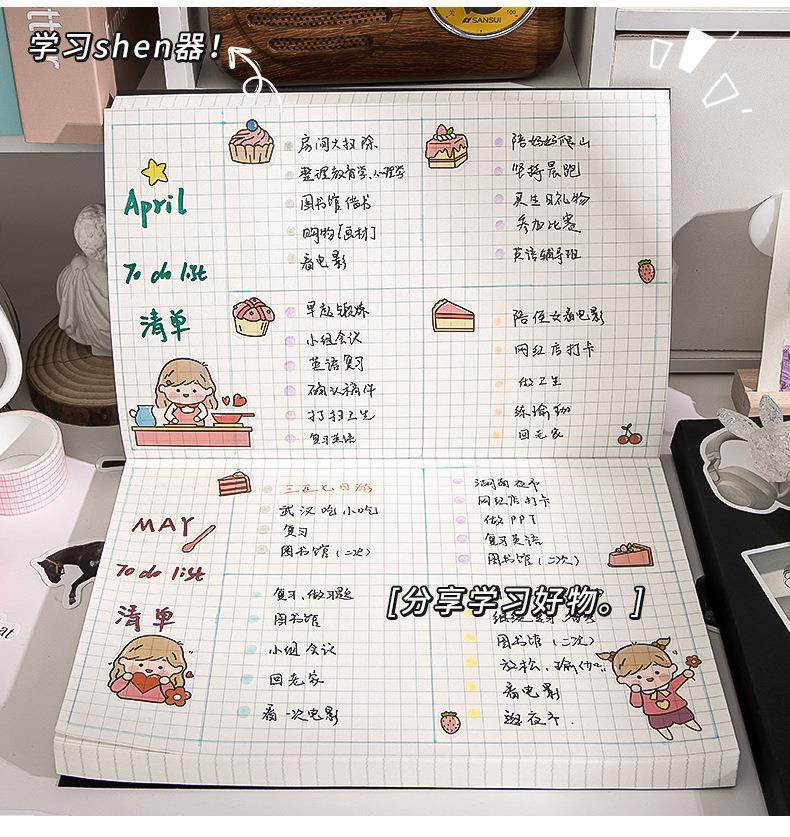 学习shen器！
SANSUI
100
April
To do list
清单
房间大扫除
整理教育学、心理学
图书馆借书
购物[画材]
看电影
陪妈妈爬山
坚持晨跑
买生日礼物
参加比赛
英语辅导班
早起锻炼
小组会议
英语复习
确认稿件
打扫卫生
复习英语
陪侄女看电影
网红店打卡
做卫生
练瑜伽
回老家
MAY
To do list
清单
三亚七日游
武汉吃小吃
复习
图书馆（二次）
夜市
网红店打卡
做PPT
复习英语
图书馆（二次）
复习、做习题
图书馆
小组会议
回老家
看一次电影
[分享学习好物。]
图书馆（二次）
放松、瑜伽
看电影
逛夜市.